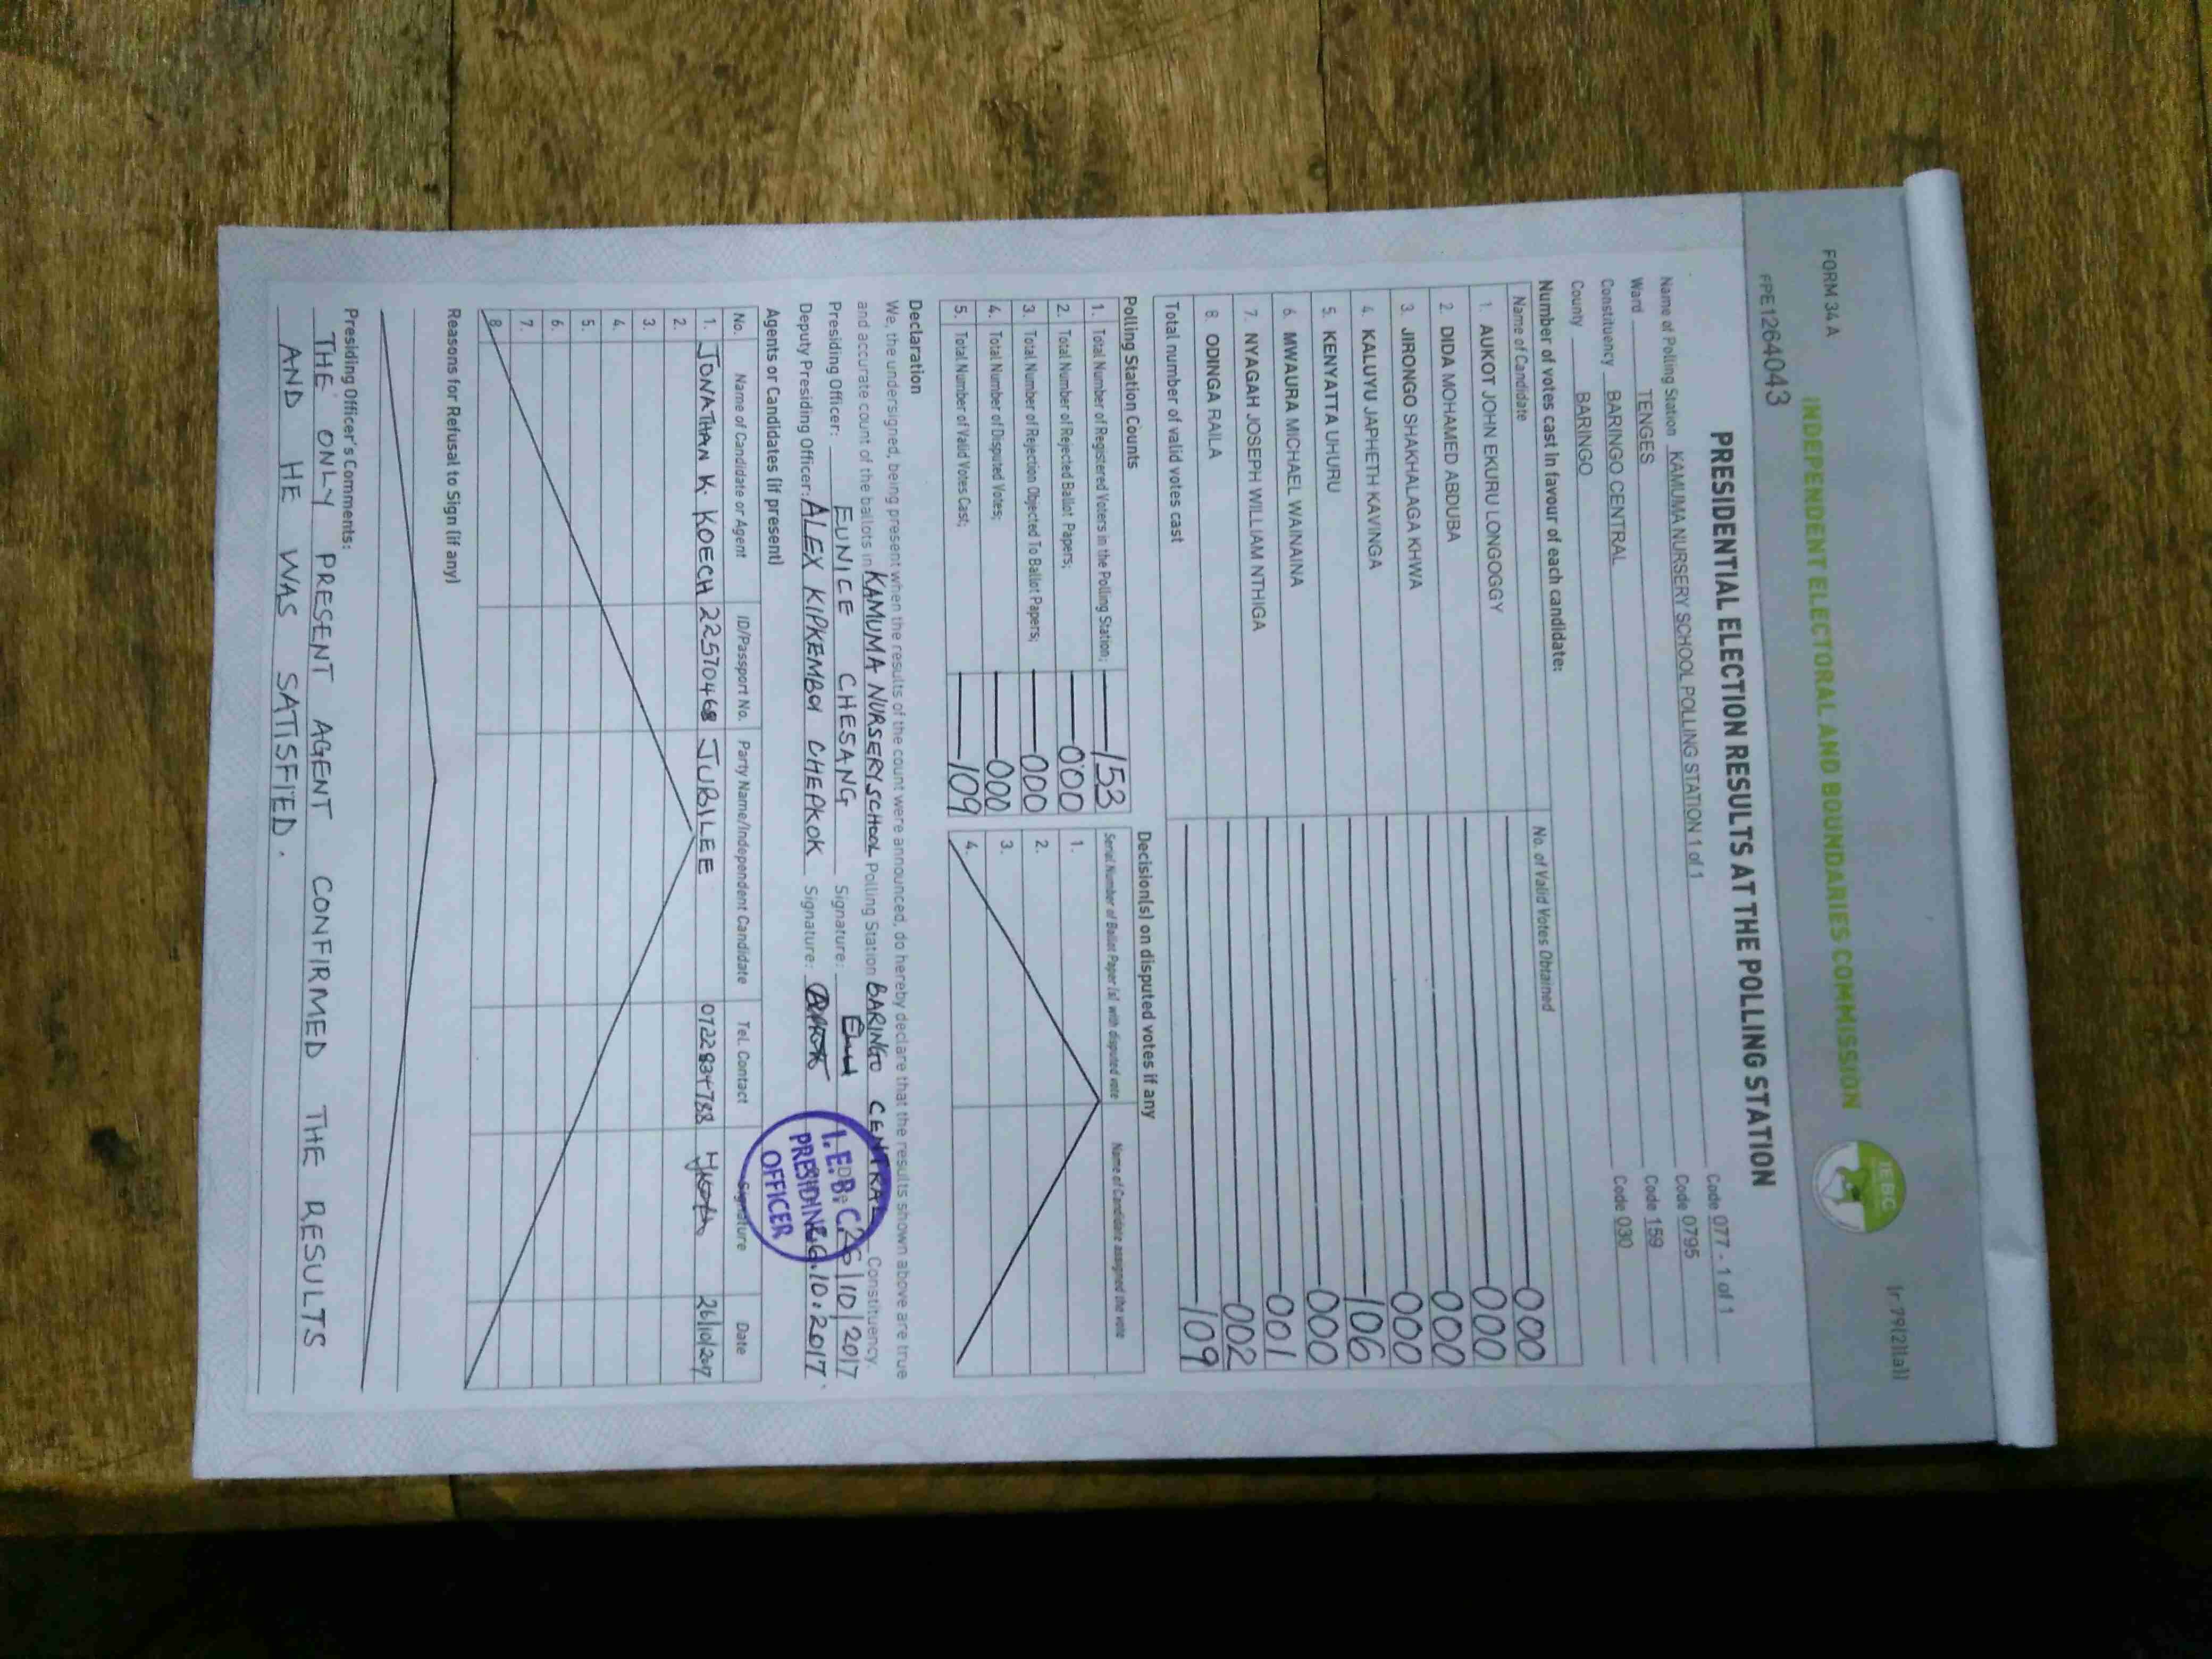 FORM 34 A
(r 79(2)(a))
INDEPENDENT ELECTORAL AND BOUNDARIES COMMISSION
IEBC
PPE1264043
PRESIDENTIAL ELECTION RESULTS AT THE POLLING STATION
Name of Polling Station KAMUMA NURSERY SCHOOL POLLING STATION 1 of 1 Code 077 - 1 of 1
Ward TENGES Code 0795
Constituency BARINGO CENTRAL Code 159
County BARINGO Code 030
Number of votes cast in favour of each candidate:
Name of Candidate No. of Valid Votes Obtained
1. AUKOT JOHN EKURU LONGOGGY 000
2. DIDA MOHAMED ABDUBA 000
3. JIRONGO SHAKHALAGA KHWA 000
4. KALUYU JAPHETH KAVINGA 000
5. KENYATTA UHURU 106
6. MWAURA MICHAEL WAINAINA 000
7. NYAGAH JOSEPH WILLIAM NTHIGA 001
8. ODINGA RAILA 002
Total number of valid votes cast 109
Polling Station Counts
1. Total Number of Registered Voters in the Polling Station; 153
2. Total Number of Rejected Ballot Papers; 000
3. Total Number of Rejection Objected To Ballot Papers; 000
4. Total Number of Disputed Votes; 000
5. Total Number of Valid Votes Cast; 109
Decision(s) on disputed votes if any
Serial Number of Ballot Paper (s) with disputed vote Name of Candidate assigned the vote
1.
2.
3.
4.
Declaration
We, the undersigned, being present when the results of the count were announced, do hereby declare that the results shown above are true
and accurate count of the ballots in KAMUMA NURSERY SCHOOL Polling Station BARINGO CENTRAL Constituency.
Presiding Officer: EUNICE CHESANG Signature: 26/10/2017
Deputy Presiding Officer: ALEX KIPKEMBOI CHEPKOK Signature: 26.10.2017
I.E.B.C.
PRESIDING
OFFICER
Agents or Candidates (if present)
No. Name of Candidate or Agent ID/Passport No. Party Name/Independent Candidate Tel. Contact Signature Date
1. JONATHAN K. KOECH 22570468 JUBILEE 0722834788 26/10/2017
2.
3.
4.
5.
6.
7.
8.
Reasons for Refusal to Sign (if any)
Presiding Officer's Comments:
THE ONLY PRESENT AGENT CONFIRMED THE RESULTS
AND HE WAS SATISFIED.